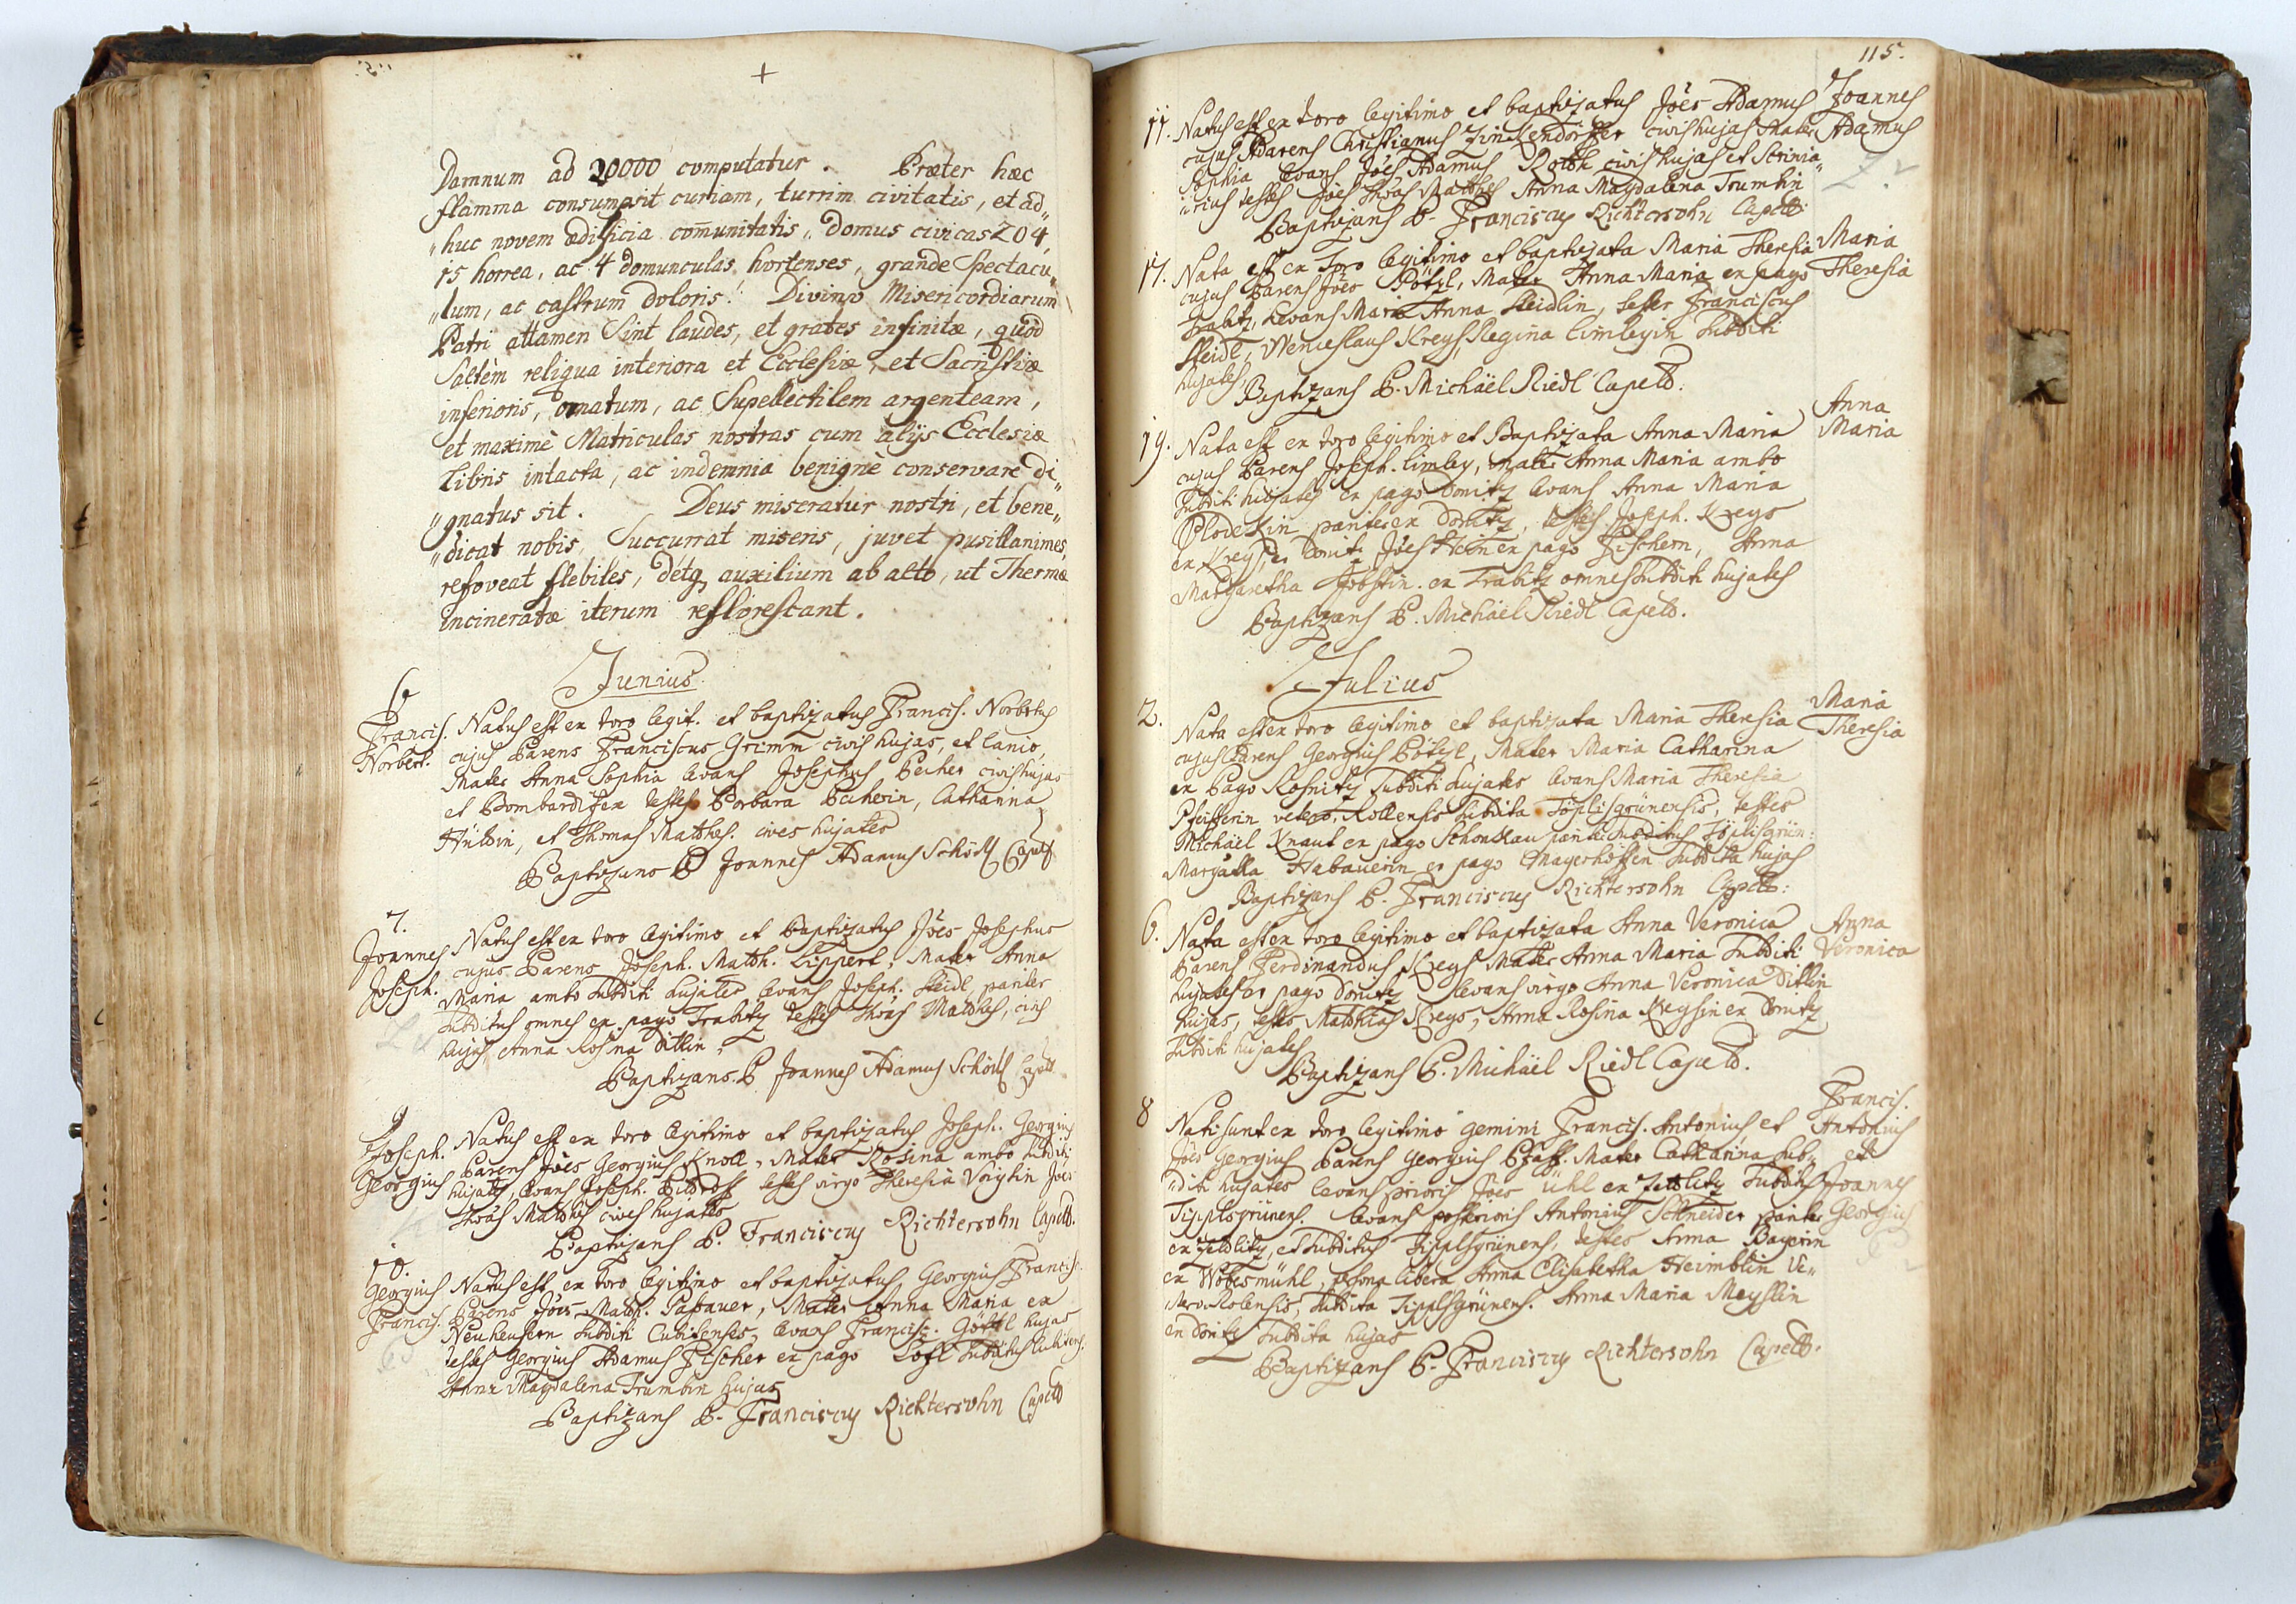 +
Damnum ad 20000 computatur. Præter hæc
flamma consumpsit curiam, turrim civitatis, et ad„
„huc novem ædificia com̄unitatis, Domus civicas 204,
15 horrea, ac 4 domunculas hortenses, grande Spectacu„
„lum, ac castrum doloris! Divino Misericordiarum
Patri attamen Sint laudes, et grates infinitæ, quod
Saltèm reliqua interiora et Ecclesiæ, et Sacristiæ
inferioris, ornatum, ac Supellectilem argenteam,
et maximè Matriculas nostras cum alijs Ecclesiæ
Libris intacta, ac indemnia benignè conservare di„
„gnatus sit. Deus misereatur nostri, et bene„
„dicat nobis, Succurrat miseris, juvet pusillanimes,
refoveat flebiles, detq auxilium ab alto, ut Thermæ
incineratæ iterum reflorescant.
Junius
6
Francis. Norbert.
Natus est ex toro legit. et baptizatus Francis. Norbertus
cujus Parens Franciscus Grimm civis hujas, et lanio,
Mater Anna Sophia levans Josephus Becher civis hujas
et Bombardifex testes Barbara Becherin, Catharina
et Thomas Matthes. cives hujates
Baptizans P Joannes Adamus Schöttl Capell
7.
Joannes Joseph.
Natus est ex toro legitimo et Baptizatus Jões Josephus
cujus Parens Joseph. Matth. Lippert, Mater Anna
Maria ambo subditi hujates levans Joseph. Heidl, pariter
subditus omnes ex pago Trabitz testes Thoas Matthes, civis
hujas Anna Rosina Ditlin,
Baptizans. P Joannes Adamus Schöttl Capell
9
Joseph. Georgius
Natus est ex toro legitimo et baptizatus Joseph. Georgius
Parens Jões Georgius Knoll, Mater Rosina ambo subditi
hujates, levans Joseph. testes virgo Theresia Voigtin Jões
Thoas Matthes cives hujates
Baptizans P. Franciscus Richtersohn Capell.
10.
Georgius Francis.
Natus est ex toro legitimo et baptizatus Georgius Francis.
Parens Jões Math. Passauer, Mater Anna Maria ex
Neuheusern subditi Cubitenses, levans Francisc. Göttl hujas
testes Georgius Adamus Fischer ex pago Soss subditus Cubitens.
Anna Magdalena Trumbin hujas
Baptizans P. Franciscus Richtersohn Capell
115.
11. Natus est ex toro legitimo et baptizatus Jões Adamus
Joannes Adamus
cujus Parens Christianus Zinckendörffer civis hujas Mater
Sophia levans Jões Adamus Roth civis hujas et Scrinia„
„rius testes Jões Thoas Matthes Anna Magdalena Trumbin
Baptizans P. Franciscus Richtersohn Capell:
17. Nata est ex toro legitimo et baptizata Maria Theresia
Maria Theresia
cujus Parens Jões Pötzl, Mater Anna Maria ex pago
Trabitz, levans Maria Anna Heidlin, testes Franciscus
Heidl, Wenceslaus Kreys, Regina Limleyin subditi
hujates,
Baptizans P. Michäel Riedl Capell.
19. Nata est ex toro legitimo et Baptizata Anna Maria
Anna Maria
cujus Parens Joseph. Limley, mater Anna Maria ambo
subditi hujates ex pago Donitz levans Anna Maria
pariter ex Donitz, testes Joseph. Kreys
Jões Hein ex pago Fischern, Anna
Margaretha Jobstin ex Trabitz omnes subditi hujates
Baptizans P. Michäel Riedl Capell.
Julius
2. Nata est ex toro legitimo et baptizata Maria Theresia
Maria Theresia
cujus Parens Georgius Pötzl, Mater Maria Catharina
ex Pago Rosnitz subditi hujates levans Maria Theresia
Pfeifferin vetero-Rollensis subdita Töplisgrünensis, testes
Michäel Knaut ex pago Schonklau pariter subditus Töplisgrün:
Margatta Habauerin ex pago Mayerhöffen subdita hujas
Baptizans P. Franciscus Richtersohn Capell:
6. Nata est ex toro legitimo et baptizata Anna Veronica
Anna Veronica
Parens Ferdinandus Kreys Mater Anna Maria subditi
hujates ex pago Donitz levans virgo Anna Veronica Ditlin
hujas, testes Matthias Kreys, Anna Rosina Kreysin ex Donitz
subditi hujates
Baptizans P. Michäel Riedl Capell.
8 Nati sunt ex toro legitimo gemini Francis. Antonius et
Francis. Antonius et Joannes Georgius
Jões Georgius Parens Georgius Pfaff. Mater Catharina sub„
„diti hujates levans prioris Jões Uhl ex Zettlitz subditus
Tipplsgrünens. levans posterioris Antonius Schneider pariter
ex Zettlitz, et subditus Tipplsgrünens, testes Anna Bayerin
ex Wobesmühl, persona libera Anna Elisabetha Heimblin Ve„
„tero-Rolensis, subdita Tipplsgrünens. Anna Maria Meyslin
ex Donitz subdita hujas
Baptizans P. Franciscus Richtersohn Capell.